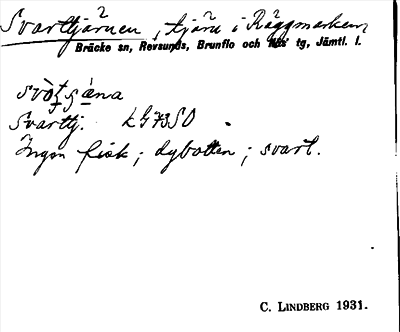 Svarttjärnen, tjärn i Räggmarken,
Bräcke sn, Revsunds, Brunflo och Näs tg, Jämtl. l.
Svarttj. LG73SO
Ingen fisk; dybotten; svart.
C. LINDBERG 1931.